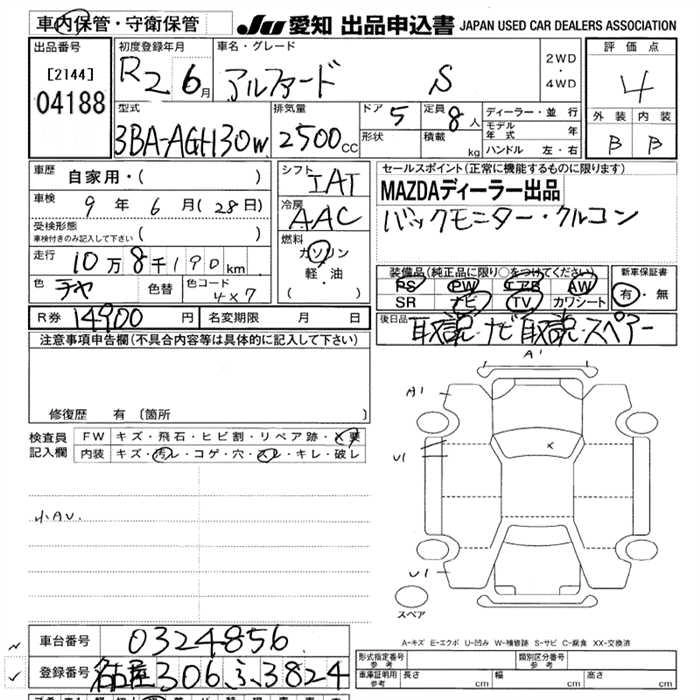 車内保管・守衛保管
JU 愛知 出品申込書 JAPAN USED CAR DEALERS ASSOCIATION
出品番号
[2144]
04188
初度登録年月
R2 6月
車名・グレード
アルファード S
2WD
・
4WD
評価点
4
外装 内装
B B
型式
3BA-AGH30W
排気量
2500cc
ドア 5
形状
定員 8人
積載 kg
ディーラー・並行
モデル年式 年
ハンドル 左・右
車歴 自家用・( )
車検 9年 6月(28日)
受検形態
車検付きのみ記入して下さい ( )
走行 10万8千190km
色 チャ 色替 色コード 4X7
シフト IAT
冷房 AAC
燃料
ガソリン
軽・油
( )
セールスポイント(正常に機能するものに限ります)
MAZDAディーラー出品
バックモニター・クルコン
装備品(純正品に限り○をつけてください)
PS PW エアB AW
SR ナビ TV カワシート
新車保証書
有・無
R券 14900円 名変期限 月 日
後日品 取説・ナビ取説・スペアー
注意事項申告欄(不具合内容等は具体的に記入して下さい)
修復歴 有 〔箇所 〕
検査員記入欄
FW キズ・飛石・ヒビ割・リペア跡・X要
内装 キズ・汚レ・コゲ・穴・スレ・キレ・破レ
小AU.
A1
A1
U1
X
U1
スペア
A-キズ E-エクボ U-凹み W-補修跡 S-サビ C-腐食 XX-交換済
車台番号 0324856
登録番号 名古屋306ふ3824
形式指定番号 参考
類別区分番号 参考
車庫証明用 参考 長さ cm 幅 cm 高さ cm